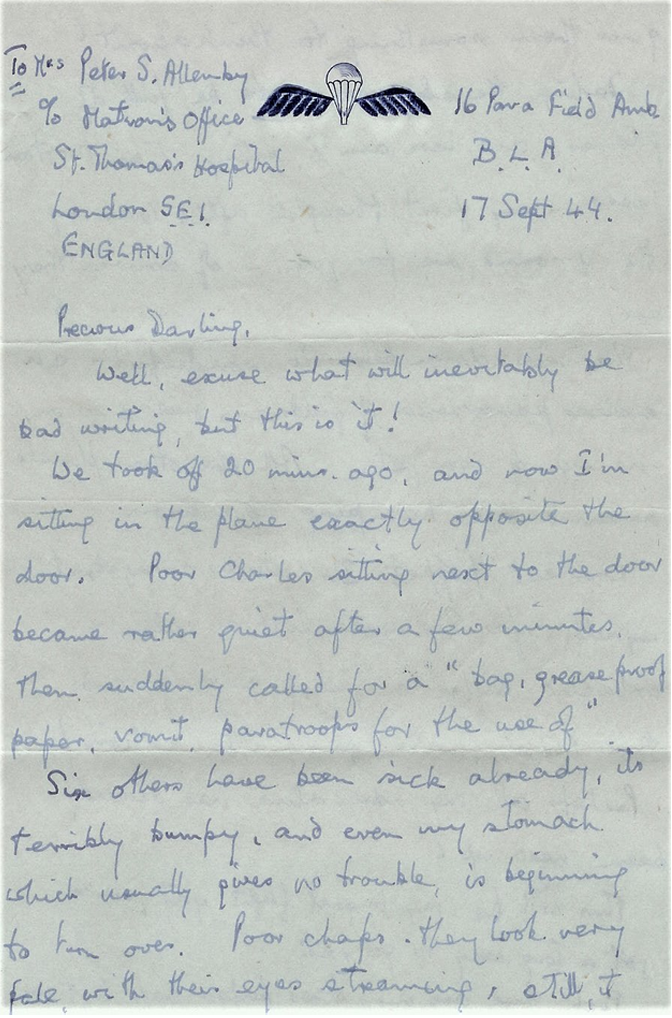 To Mrs Peter S. Allenby
c/o Matron's Office
St. Thomas's Hospital
London SE1.
ENGLAND
16 Para Field Amb
B.L.A.
17 Sept 44.
Precious Darling,
Well, excuse what will inevitably be
bad writing, but this is it!
We took off 20 mins. ago, and now I'm
sitting in the plane exactly opposite the
door. Poor Charles sitting next to the door
became rather quiet after a few minutes,
then suddenly called for a "bag, grease proof
paper, vomit, paratroops for the use of"
Six others have been sick already, its
terribly bumpy, and even my stomach
which usually gives no trouble, is beginning
to turn over. Poor chaps. they look very
pale, with their eyes streaming, still, it